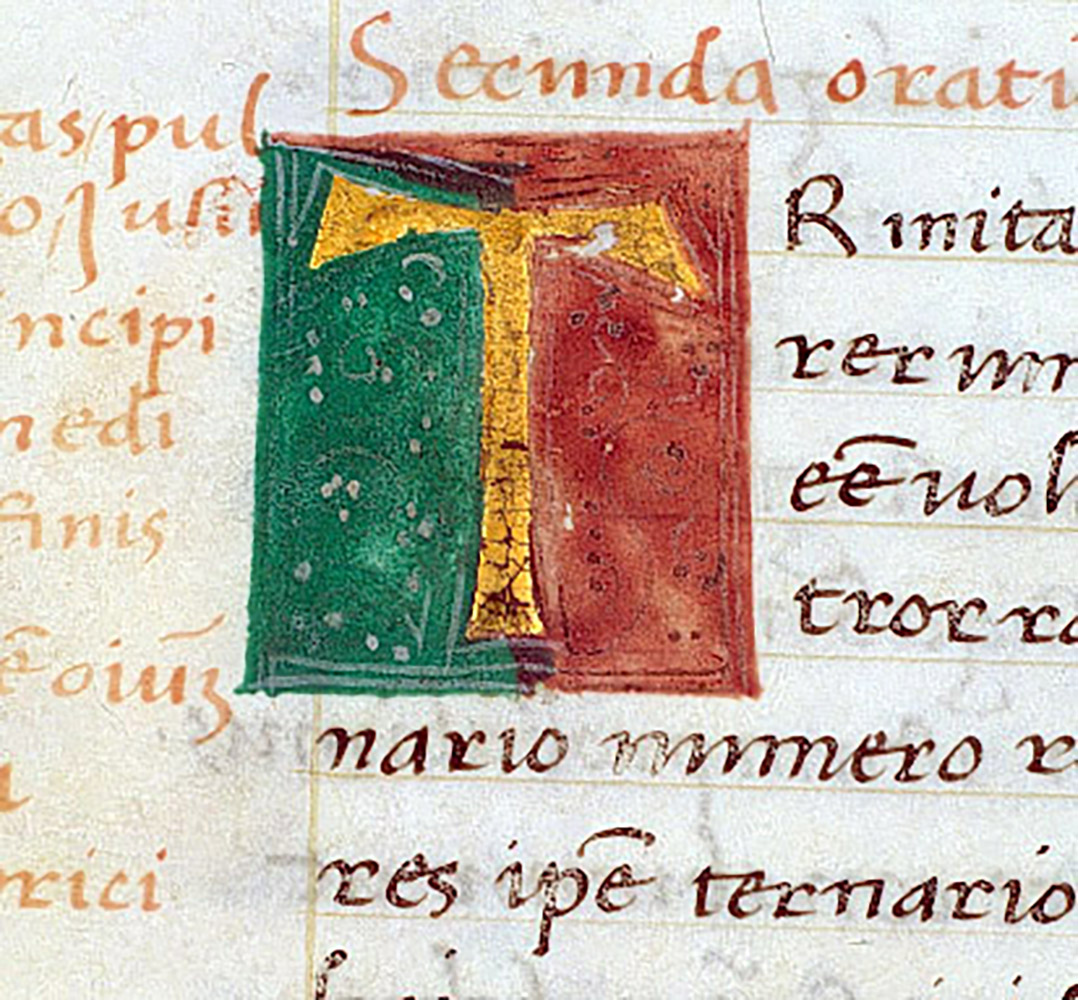 Secunda orati
as pul
ncipi
nedi
finis
ē oiuʒ
rici
T
Rinita
rer
eē uol
tror
nario numero r
res ipē ternario